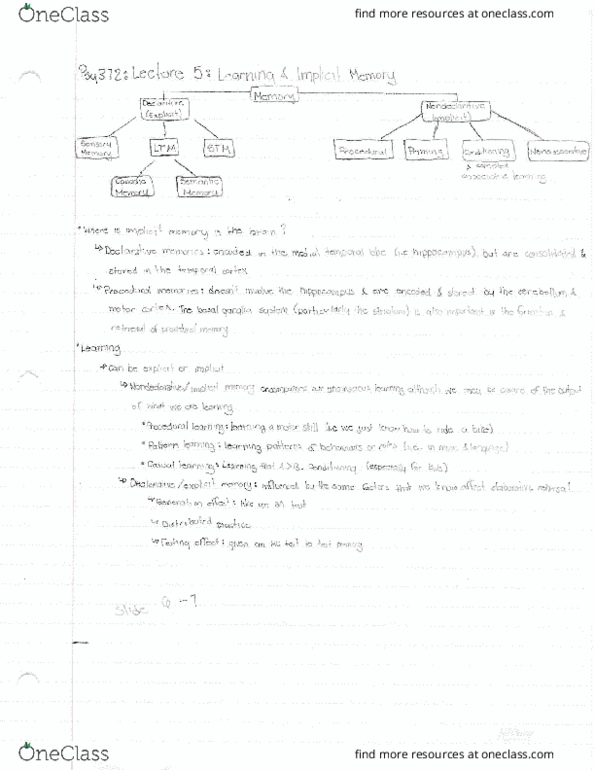 OneClass
find more resources at oneclass.com
Psy372: Lecture 5: Learning & Implicit Memory
Memory
Declarative (Explicit)
Nondeclarative (implicit)
Sensory Memory
LTM
STM
Procedural
Priming
Conditioning
Nonassociative
associative learning
Semantic Memory
Where is implicit memory in the brain?
Declarative memories: encoded in the medial temporal lobe (i.e hippocampus), but are consolidated &
stored in the temporal cortex
Procedural memories: doesn't involve the hippocampus & are encoded & stored by the cerebellum &
motor cortex. The basal ganglia system (particularly the striatum) is also important in the formation &
retrieval of procedural memory
Learning
can be explicit or implicit
Nondeclarative/implicit memory encompasses our learning although we may be aware of the output
of what we are learning
Procedural learning: learning a motor skill we just know how to ride a bike)
Pattern learning: learning patterns of behaviours or rules (i.e. in music & language)
Causal learning: learning that conditioning. (especially for kids)
Declarative/explicit memory: influenced by the same factors that we know affect elaborative
Generation effect:
Distributed practice
Testing effect: given
Slide 6-7
OneClass
find more resources at oneclass.com